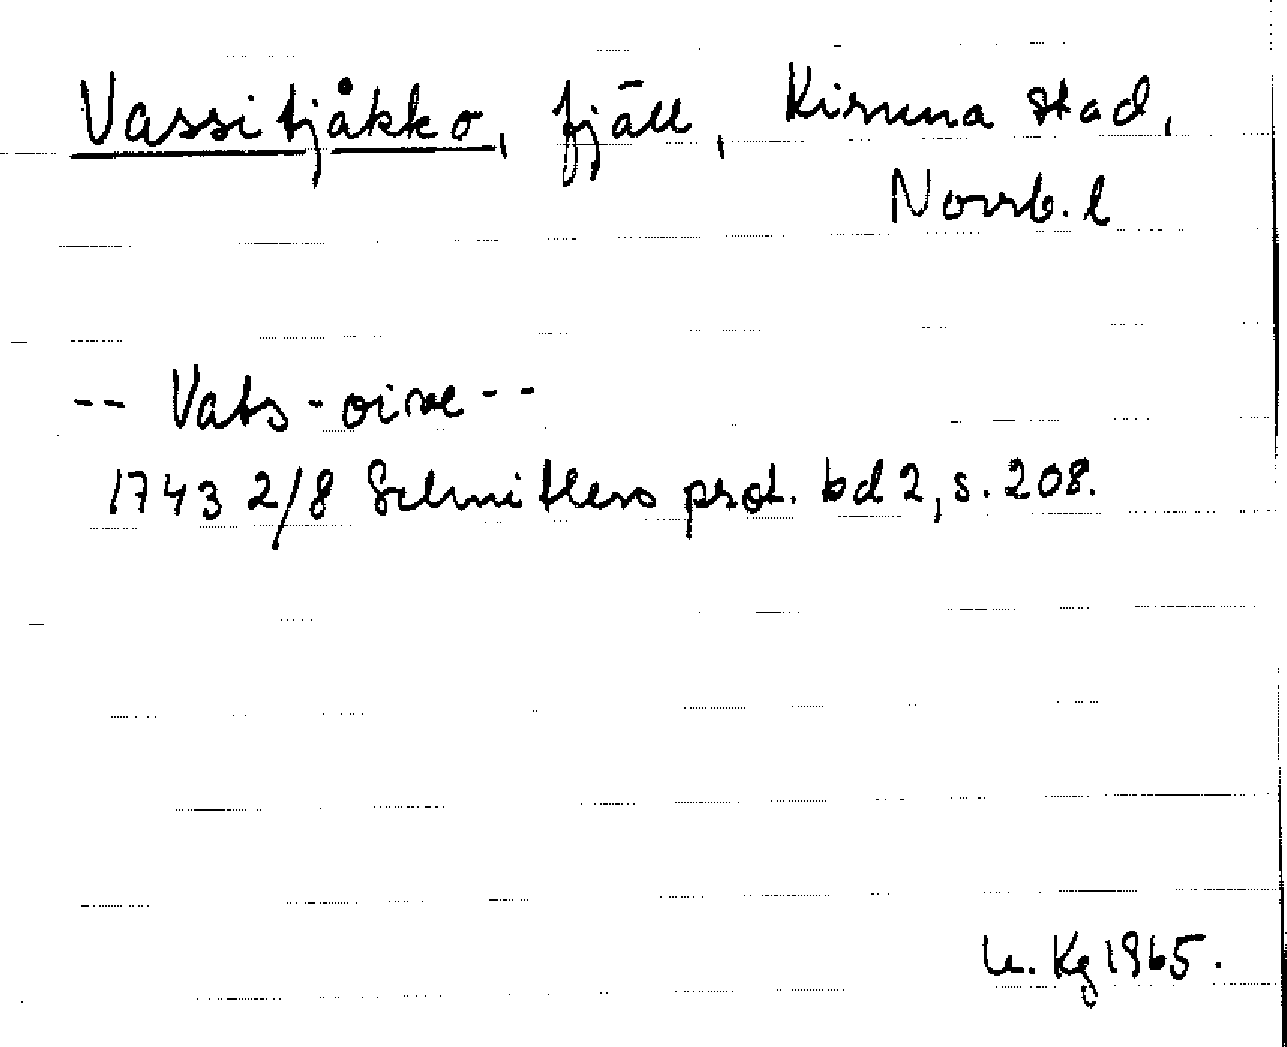 Vassitjåkko, fjäll, Kiruna stad,
Norrb. l
-- Vats-oive--
1743 2/8 Schnitlers prot. bd 2, s. 208.
Kg 1965.